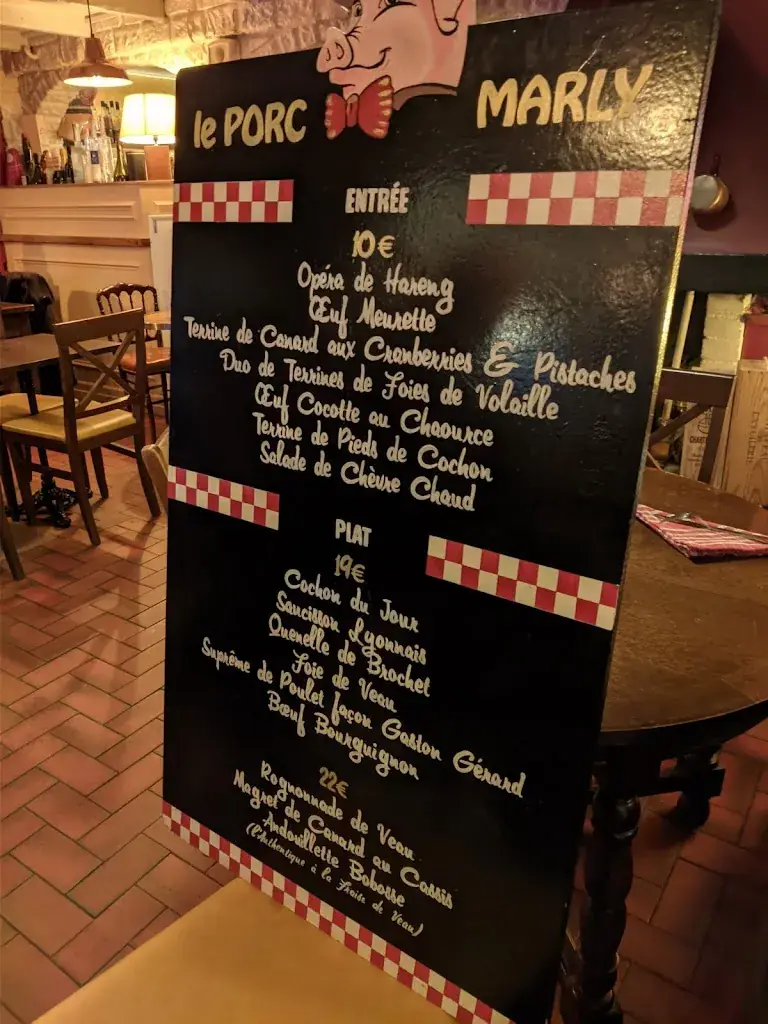 le PORC MARLY
ENTRÉE
10€
Opéra de Hareng
Œuf Meurette
Terrine de Canard aux Cranberries & Pistaches
Duo de Terrines de Foies de Volaille
Œuf Cocotte au Chaource
Terrine de Pieds de Cochon
Salade de Chèvre Chaud
PLAT
19€
Cochon du Jour
Saucisson Lyonnais
Quenelle de Brochet
Foie de Veau
Suprême de Poulet façon Gaston Gérard
Bœuf Bourguignon
22€
Rognonnade de Veau
Magret de Canard au Cassis
Andouillette Bobosse
(l'Authentique à la Fraise de Veau)